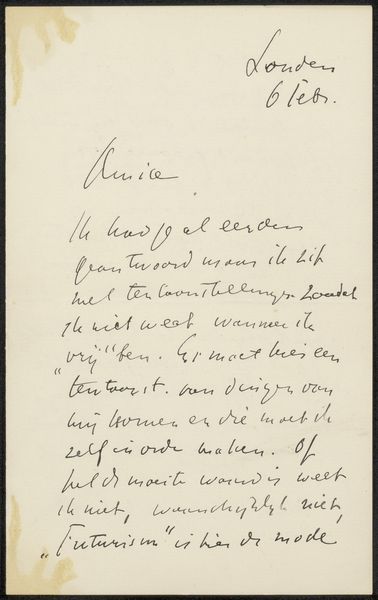 Londen
6 Febr.
Amice
Ik had je al eerder
geantwoord maar ik zit
met tentoonstellingen zoodat
ik niet weet wanneer ik
"vrij" ben. Er moet hier een
tentoonst. van dingen van
mij komen en die moet ik
zelf in orde maken. Of
het de moeite waard is weet
ik niet, waarschijnlijk niet,
"Futurism" is hier de mode